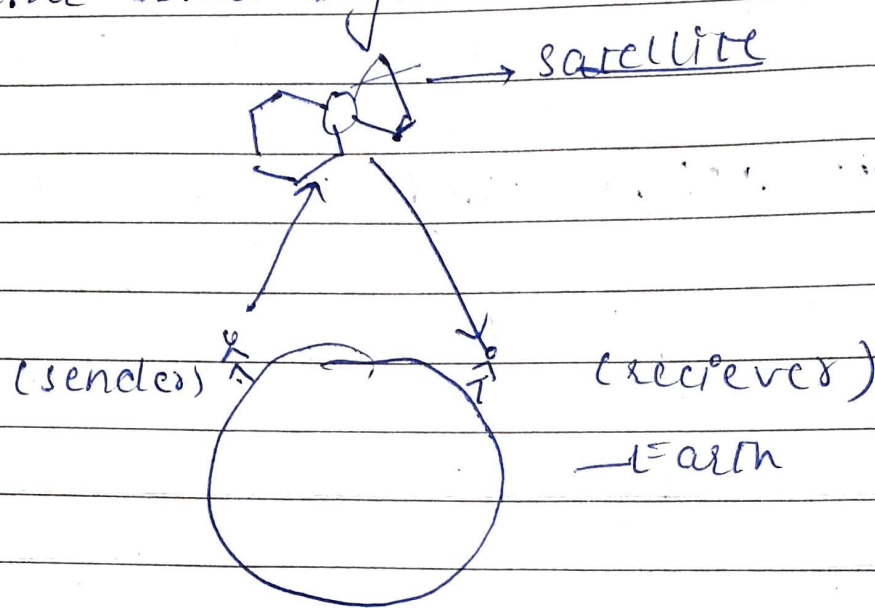 satellite
(sender)
(reciever)
Earth